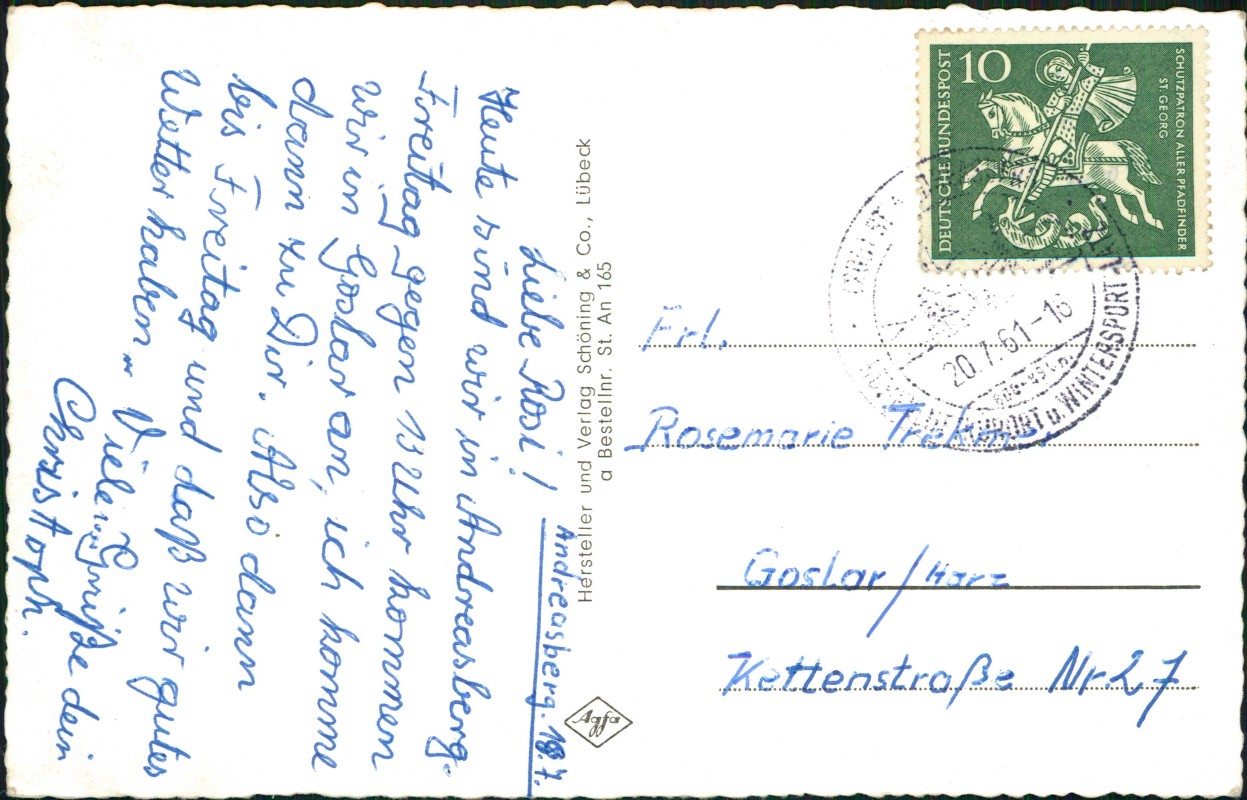 Andreasberg. 19.7.
Liebe Rosi!
Heute sünd wir in Andreasberg.
Freitag gegen 13 Uhr kommen
wir in Goslar an, ich komme
dann zu Dir. Also dann
bis Freitag und daß wir gutes
Wetter haben„ Viele Grüße dein
Christoph.
Hersteller und Verlag Schöning & Co., Lübeck
a Bestellnr. St. An 165
Agfa
10
DEUTSCHE BUNDESPOST
SCHUTZPATRON ALLER PFADFINDER
ST. GEORG
20.7.61-16
u. WINTERSPORT
Frl.
Rosemarie
Goslar/Harz
Kettenstraße Nr. 27